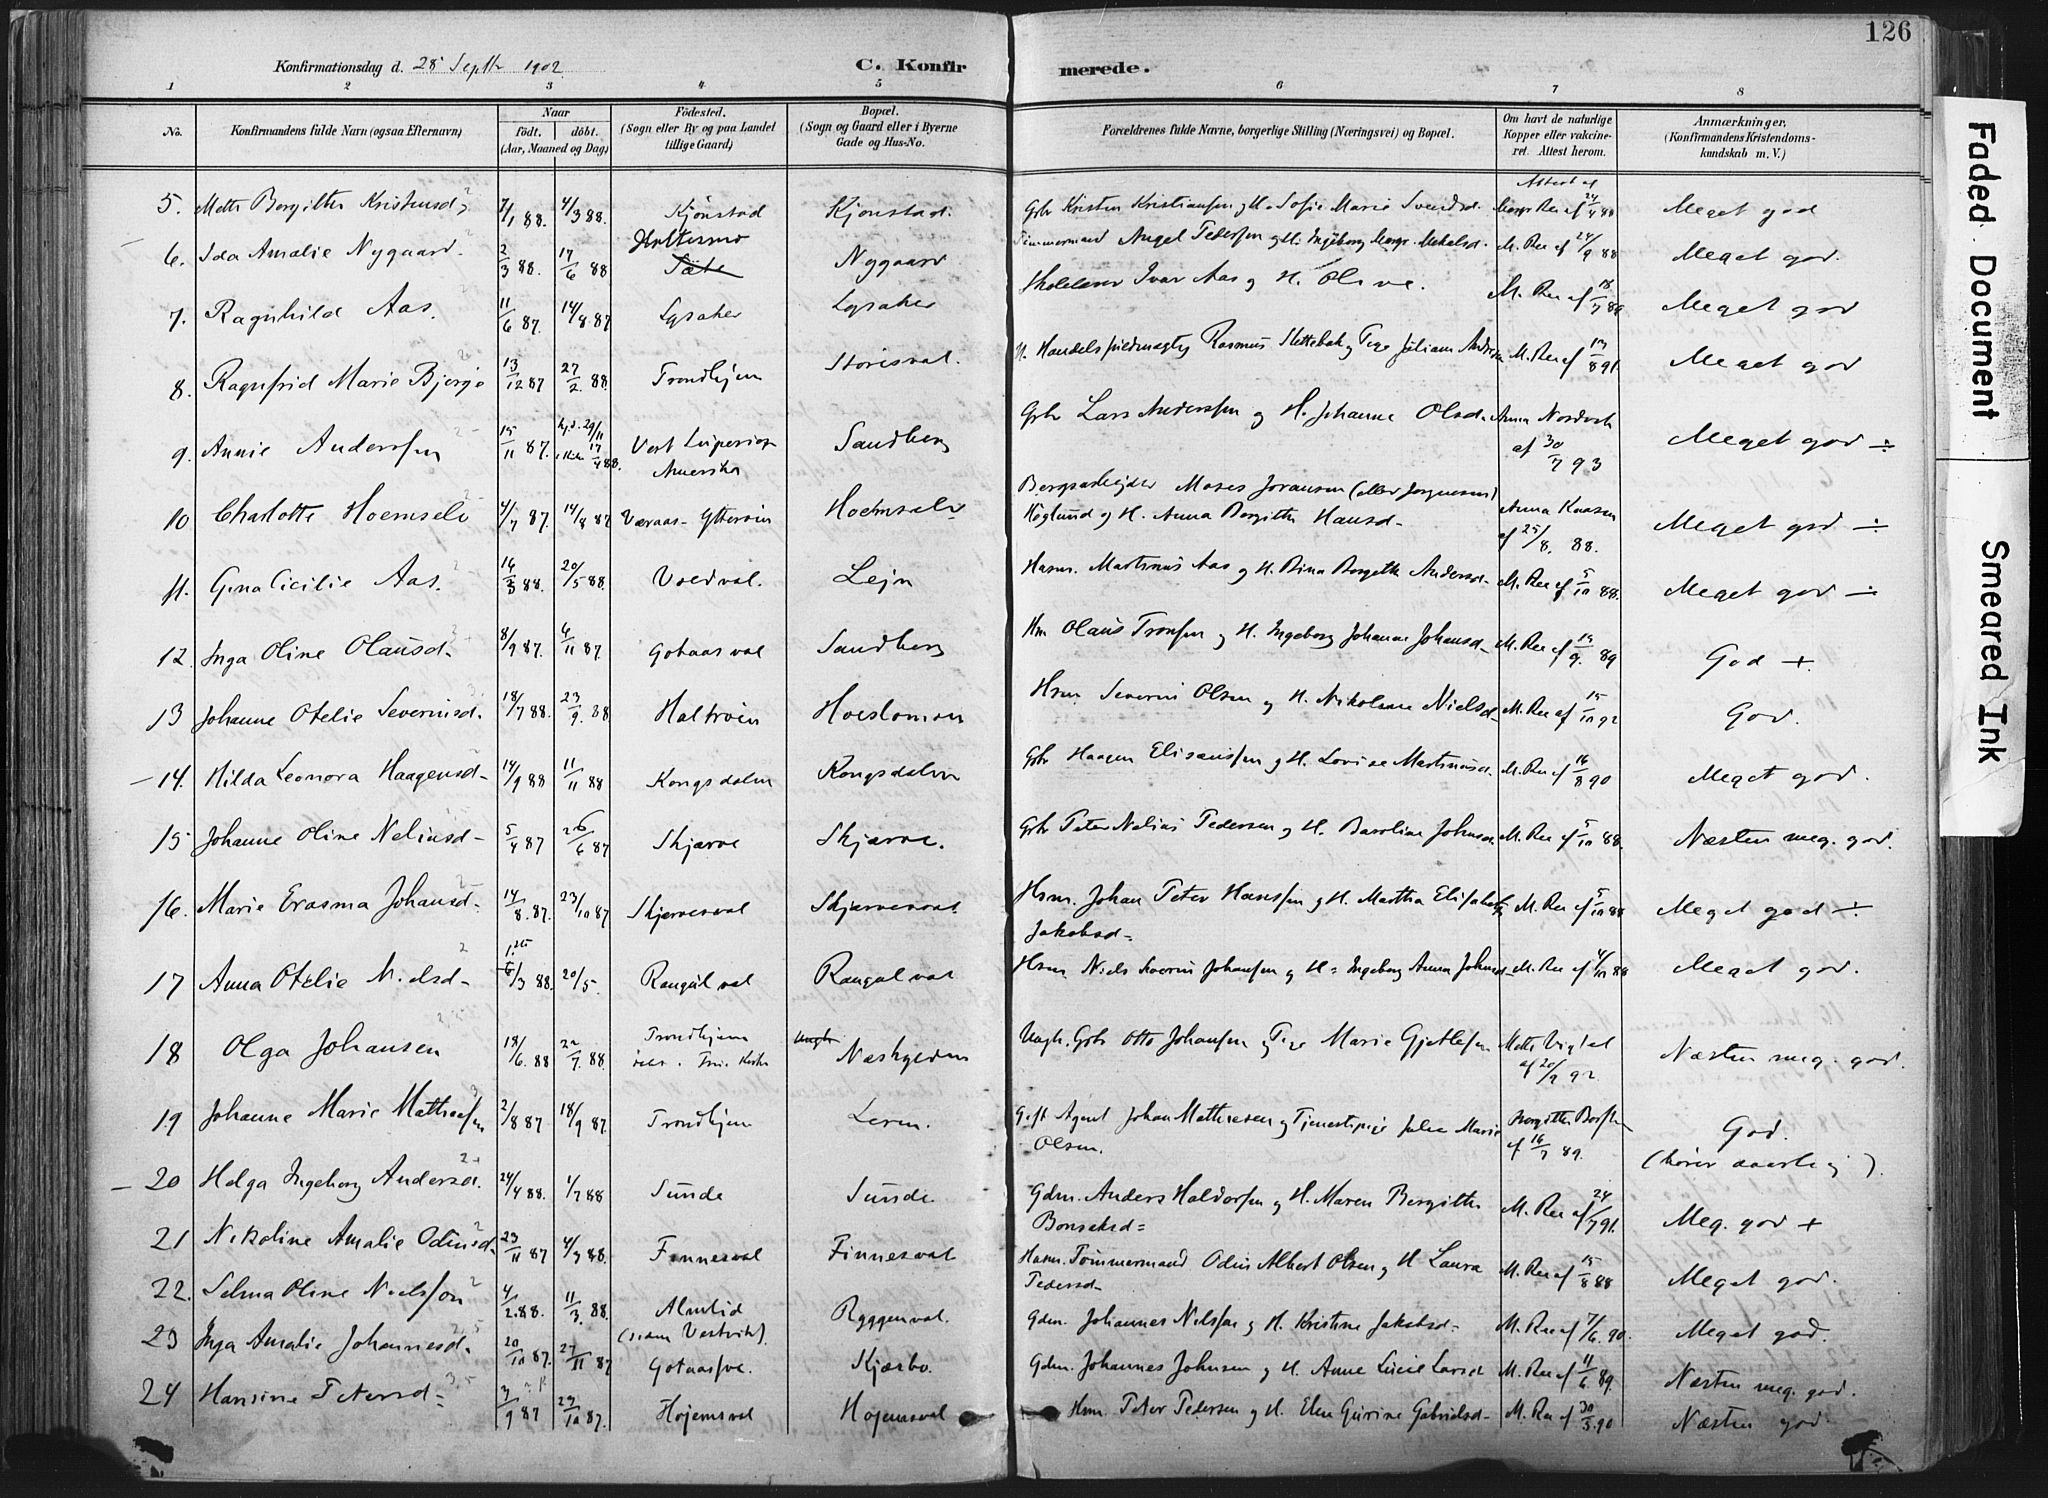 126
Konfirmationsdag d. 28 Septbr 1902.
C. Konfirmerede.
1 2 3 4 5 6 7 8
No. Konfirmandens fulde Navn (ogsaa Efternavn) Naar født. døbt. (Aar, Maaned og Dag) Fødested. (Sogn eller By og paa Landet tillige Gaard) Bopæl. (Sogn og Gaard eller i Byerne Gade og Hus-No. Forældrenes fulde Navne, borgerlige Stilling (Næringsvei) og Bopæl. Om havt de naturlige Kopper eller vakcineret. Attest herom. Anmærkninger, (Konfirmandens Kristendomskundskab m. V.)
5. Mette Bergitte Kristensd. 7/1 88. 4/3 88. Kjönstad Kjönstad. Gbr Kristen Kristiansen og H. Sofie Marie Svendsd. Attest af 24/4 88 Meget god
6. Ida Amalie Nygaard 2/3 88. 17/6 88 Holtesmo Nygaard Tømmermand Angel Pedersen og H. Ingeborg Marg. Mekalsd. M. Ree af 24/9 88 Meget god.
7. Ragnhild Aas. 11/6 87. 14/8 87 Lysaker Lysaker Skolelærer Ivar Aas og H. Olive. M. Ree af 18/7 89 Meget god
8. Ragnfrid Marie Bjerge 13/12 87 27/2 88. Trondhjem Storesval. H. Handelsfuldmægtig Rasmus Slettebak og Pige Juliane Andrea M. Ree af 19/8 91. Meget god
9. Annie Anderssen 15/11 87. 29/11 17/4 88. Vest Superior Amerika Sandberg Gbr Lars Anderssen og H. Johanne Olsd. Anna Nordvik af 30/7 93 Meget god ÷
10 Charlotte Hoemselv 4/7 87. 14/8 87 Væraas - Ytterøen Hoemselv Bergsarbejder Moses Jøransen (eller Jørgensen) Höglund og H. Anna Bergitte Hansd. Anna Knasen af 25/8. 88. Meget god ÷
11. Gina Cicilie Aas. 16/3 88. 20/5 88. Voldval. Lejn Husm. Martinus Aas og H. Rina Bergitte Andersd. M. Ree af 5/10 88. Meget god ÷
12. Inga Oline Olausd. 8/9 87. 6/11 87. Gotaasval Sandberg Hm Olaus Tronsen og H. Ingeborg Johanne Johansd. M. Ree af 19/9. 89 God +
13 Johanne Otelie Severinsd. 18/7 88. 23/9. 88 Haltrøen Hoeslomoen Hsm Severin Olsen og H. Nikoline Nielsd. M. Ree af 15/10 92 God.
14. Hilda Leonora Haagensd. 14/9 88 11/11 88 Kongsdalen Kongsdalen Gbr Haagen Elisæussen og H. Lovise Martinusd. M. Ree af 16/8 90 Meget god.
15 Johanne Oline Neliusd. 5/4 87 26/6 87 Skjærve Skjærve. Gbr Peter Nelius Pedersen og H. Baroline Johnsd. M. Ree af 5/10 88. Næsten meg. god.
16. Marie Erasma Johansd. 14/8. 87. 23/10 87 Skjervesval Skjærvesval Hsm. Johan Peter Hanssen og H. Martha Elisabeth Jakobsd. M. Ree af 5/10 88 Meget god ÷
17 Anna Otelie Nielsd. /3 88. 20/5. Rangulval Rangulval Hsm. Niels Severin Johansen og H. Ingeborg Anna Johnsd. M. Ree af 4/10 88 Meget god.
18 Olga Johansen 18/6. 88 22/7. 88. Trondhjem Næskylden Ungk. Gbr Otto Johansen Pige Marie Gjetlesen Mette Vigtel af 20/9 92. Næsten meg. god.
19 Johanne Marie Mathiesen 2/8 87 18/9 87. Trondhjem Leren. Gift Agent Johan Mathiesen og Tjenestepige Julie Marie Olsen. Bergitte Borsten af 16/7 89. God. (hører daarlig).
20 Helga Ingeborg Andersd. 24/4 88. 1/7 88 Sunde Sunde Gdm. Anders Haldorsen og H. Maren Bergitte Bonsaksd. M. Ree af 24/7 91. Meg. god +
21 Nikoline Amalie Odinsd. 23/11 87 4/3 88. Finnesval Finnesval Husm. Tømmermand Odin Albert Olsen og H Laura Pedersd. M. Ree af 15/8 88 Meget god.
22. Selma Oline Nielsson 4/2. 88. 11/3. 88. Almlid (Vestvik). Ryggenval. Gdm. Johannes Nilsson og H. Kristine Jakobsd. M. Ree af 7/6. 90. Meget god.
23 Inga Amalie Johannesd. 20/10 87. 27/11 87 Gotaassve. Kjærbo. Gdm. Johannes Johnsen og H. Anne Lucie Larsd M. Ree af 11/6 89. Næsten meg. god.
24 Hansine Petersd. 3/9 87 29/10 87. Højemsval Højemsval Hsm. Peter Pedersen og H. Elen Gurine Gabrielsd. M. Ree af 30/3. 90 Næsten god.
Faded Document
Smeared Ink